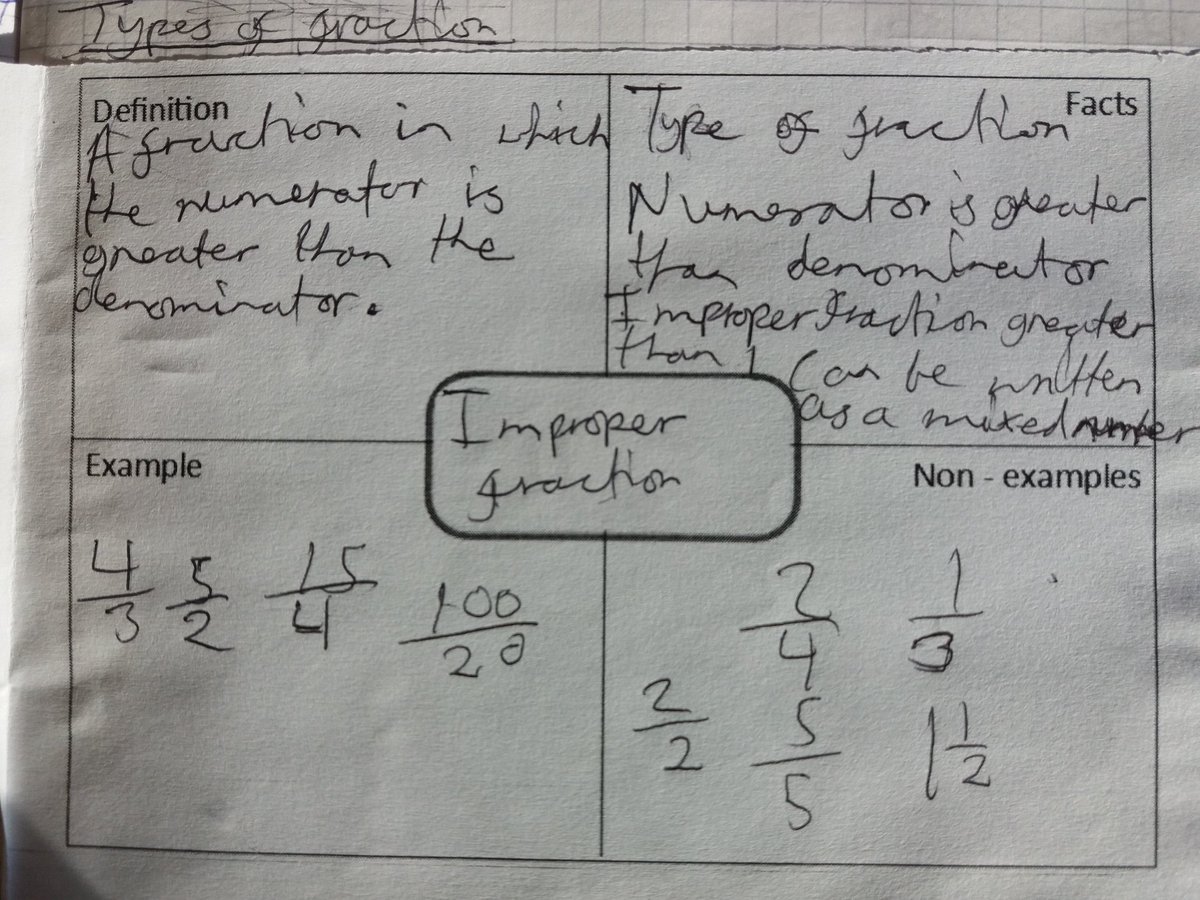 Types of fraction
Definition
A fraction in which
the numerator is
greater than the
denominator.
Facts
Type of fraction
Numerator is greater
than denominator
Improper fraction greater
than 1 Can be written
as a mixed number
Improper
fraction
Example
4/3 5/2 15/4 100/20
Non - examples
2/4 1/3
2/2 5/5 1 1/2